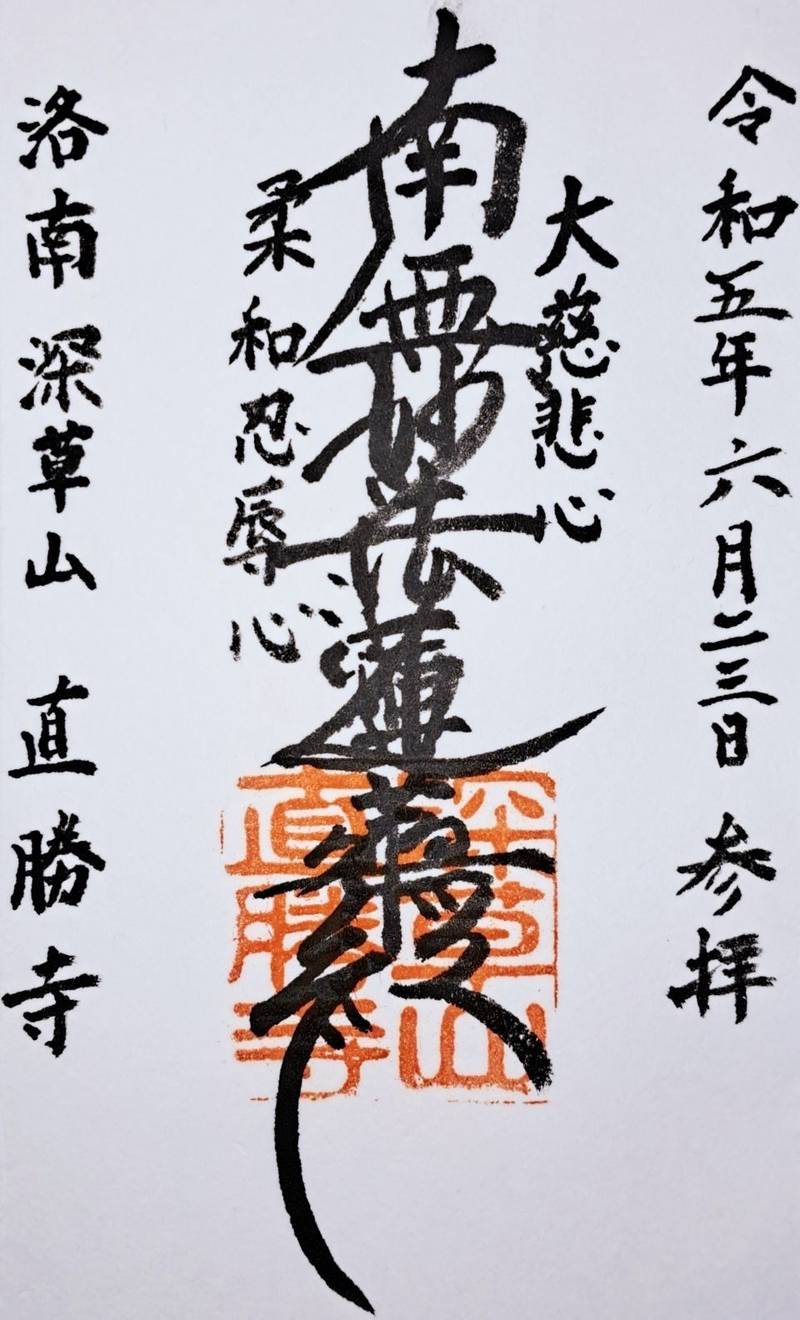 令和五年六月二三日 参拝
大慈悲心
南無妙法蓮華経
柔和忍辱心
洛南 深草山 直勝寺
深草山
直勝寺